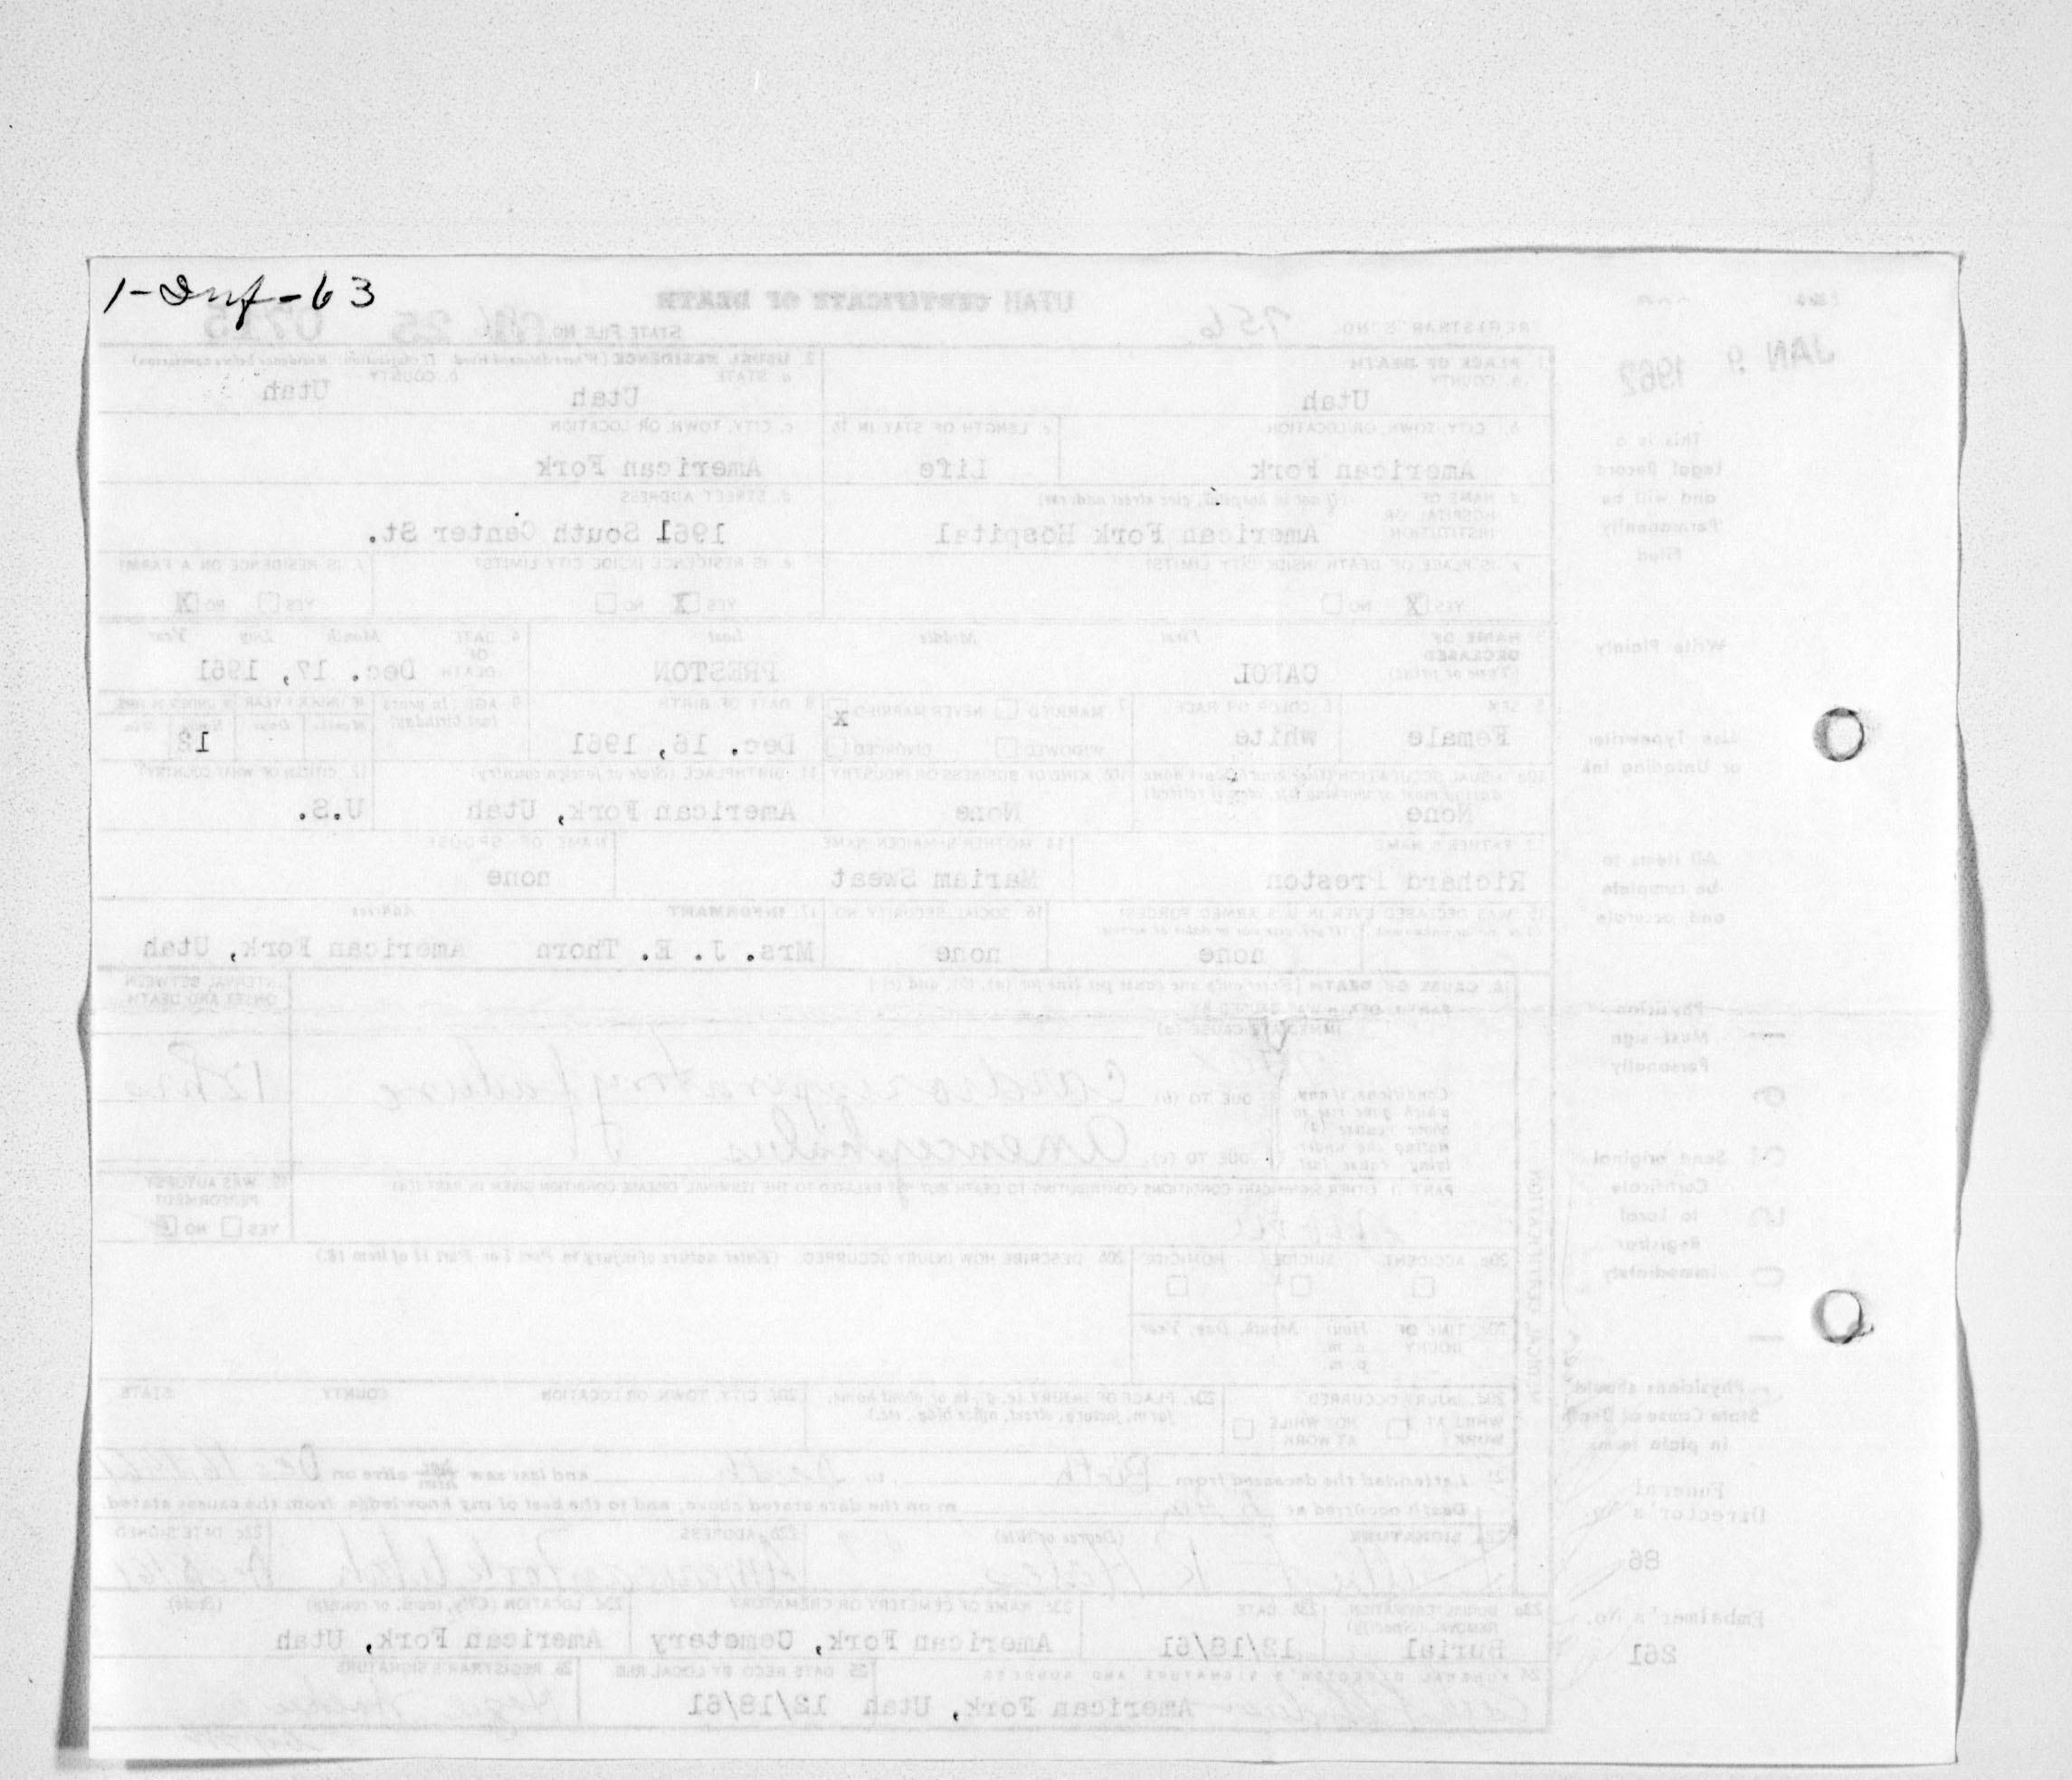 1-Inf-63
UTAH CERTIFICATE OF DEATH
REGISTRAR'S NO. 756
STATE FILE NO. 25 0715
JAN 9 1962
1. PLACE OF DEATH
a. COUNTY
Utah
2. USUAL RESIDENCE (Where deceased lived. If institution: Residence before admission)
a. STATE
Utah
b. COUNTY
Utah
b. CITY, TOWN, OR LOCATION
American Fork
c. LENGTH OF STAY IN 1b
Life
c. CITY, TOWN, OR LOCATION
American Fork
d. NAME OF HOSPITAL OR INSTITUTION (If not in hospital, give street address)
American Fork Hospital
d. STREET ADDRESS
1961 South Center St.
e. IS PLACE OF DEATH INSIDE CITY LIMITS?
YES X NO
e. IS RESIDENCE INSIDE CITY LIMITS?
YES X NO
f. IS RESIDENCE ON A FARM?
YES NO X
3. NAME OF DECEASED (Type or print)
First Middle Last
CAROL PRESTON
4. DATE OF DEATH
Month Day Year
Dec. 17, 1961
5. SEX
Female
6. COLOR OR RACE
white
7. MARRIED NEVER MARRIED X
WIDOWED DIVORCED
8. DATE OF BIRTH
Dec. 16, 1961
9. AGE (In years last birthday)
IF UNDER 1 YEAR IF UNDER 24 HRS.
Months Days Hours Min.
10a. USUAL OCCUPATION (Give kind of work done during most of working life, even if retired)
None
10b. KIND OF BUSINESS OR INDUSTRY
None
11. BIRTHPLACE (State or foreign country)
American Fork, Utah
12. CITIZEN OF WHAT COUNTRY?
U.S.
13. FATHER'S NAME
Richard Preston
14. MOTHER'S MAIDEN NAME
Mariam Sweat
NAME OF SPOUSE
none
15. WAS DECEASED EVER IN U.S. ARMED FORCES?
none
16. SOCIAL SECURITY NO.
none
17. INFORMANT Address
Mrs. J. E. Thorn American Fork, Utah
18. CAUSE OF DEATH [Enter only one cause per line for (a), (b), and (c).]
INTERVAL BETWEEN ONSET AND DEATH
PART I. DEATH WAS CAUSED BY
IMMEDIATE CAUSE (a)
Conditions, if any, which gave rise to above cause (a) stating the underlying cause last
DUE TO (b) cardio respiratory failure 12 hrs
DUE TO (c) Anencephalus
PART II. OTHER SIGNIFICANT CONDITIONS CONTRIBUTING TO DEATH BUT NOT RELATED TO THE TERMINAL DISEASE CONDITION GIVEN IN PART I(a)
19. WAS AUTOPSY PERFORMED?
YES NO
20a. ACCIDENT SUICIDE HOMICIDE
20b. DESCRIBE HOW INJURY OCCURRED. (Enter nature of injury in Part I or Part II of item 18.)
20c. TIME OF INJURY
Hour Month, Day, Year
a. m.
p. m.
20d. INJURY OCCURRED
WHILE AT WORK NOT WHILE AT WORK
20e. PLACE OF INJURY (e. g., in or about home, farm, factory, street, office bldg., etc.)
20f. CITY, TOWN OR LOCATION COUNTY STATE
21. I attended the deceased from Birth to Death and last saw her him alive on Dec 16, 1961
Death occurred at m on the date stated above; and to the best of my knowledge, from the causes stated.
22a. SIGNATURE (Degree or title)
22b. ADDRESS
American Fork, Utah
22c. DATE SIGNED
23a. BURIAL, CREMATION, REMOVAL (Specify)
Burial
23b. DATE
12/18/61
23c. NAME OF CEMETERY OR CREMATORY
American Fork, Cemetery
23d. LOCATION (City, town, or county) (State)
American Fork, Utah
24. FUNERAL DIRECTOR'S SIGNATURE AND ADDRESS
American Fork, Utah
25. DATE RECD BY LOCAL REG.
12/18/61
26. REGISTRAR'S SIGNATURE
MEDICAL CERTIFICATION
This is a
Legal Record
and will be
Permanently
Filed
Write Plainly
Use Typewriter
or Unfading Ink
All items to
be complete
and accurate
Physician
Must sign
Personally
Send original
Certificate
to Local
Registrar
Immediately
Physicians should
State Cause of Death
in plain terms
Funeral
Director's No.
86
Embalmer's No.
261